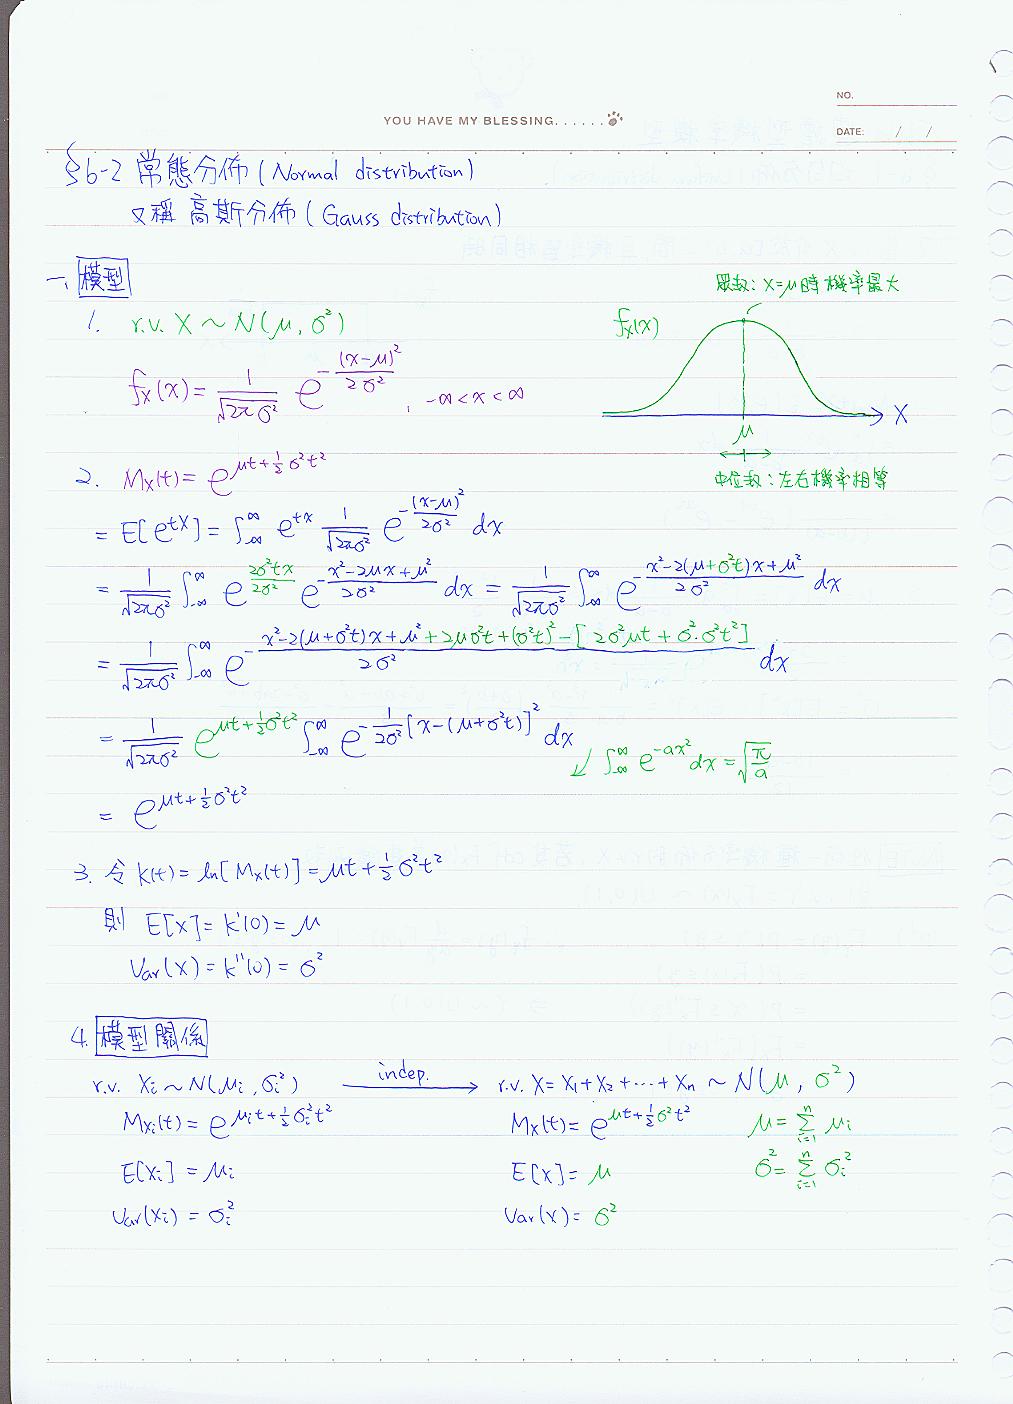 NO.
YOU HAVE MY BLESSING......
DATE: / /
§6-2 常態分佈 (Normal distribution)
又稱 高斯分佈 (Gauss distribution)
一、模型
眾數: X=μ時機率最大
1. r.v. X ~ N(μ, σ²)
f_X(x)
f_X(x) = 1/√(2πσ²) e^(-(x-μ)²/2σ²), -∞<x<∞
X
μ
中位數: 左右機率相等
2. M_X(t) = e^(μt+½σ²t²)
= E[e^(tX)] = ∫_-∞^∞ e^(tx) 1/√(2πσ²) e^(-(x-μ)²/2σ²) dx
= 1/√(2πσ²) ∫_-∞^∞ e^(2σ²tx/2σ²) e^(-(x²-2μx+μ²)/2σ²) dx = 1/√(2πσ²) ∫_-∞^∞ e^(-(x²-2(μ+σ²t)x+μ²)/2σ²) dx
= 1/√(2πσ²) ∫_-∞^∞ e^(-(x²-2(μ+σ²t)x+μ²+2μσ²t+(σ²t)²-[2σ²μt+σ²·σ²t²])/2σ²) dx
= 1/√(2πσ²) e^(μt+½σ²t²) ∫_-∞^∞ e^(-1/2σ² [x-(μ+σ²t)]²) dx
↙ ∫_-∞^∞ e^(-ax²) dx = √(π/a)
= e^(μt+½σ²t²)
3. 令 k(t) = ln[M_X(t)] = μt+½σ²t²
則 E[X] = k'(0) = μ
Var(X) = k''(0) = σ²
4. 模型關係
r.v. X_i ~ N(μ_i, σ_i²) indep. → r.v. X = X_1+X_2+⋯+X_n ~ N(μ, σ²)
M_Xi(t) = e^(μ_i t+½σ_i²t²) M_X(t) = e^(μt+½σ²t²) μ = Σ_(i=1)^n μ_i
E[X_i] = μ_i E[X] = μ σ² = Σ_(i=1)^n σ_i²
Var(X_i) = σ_i² Var(X) = σ²